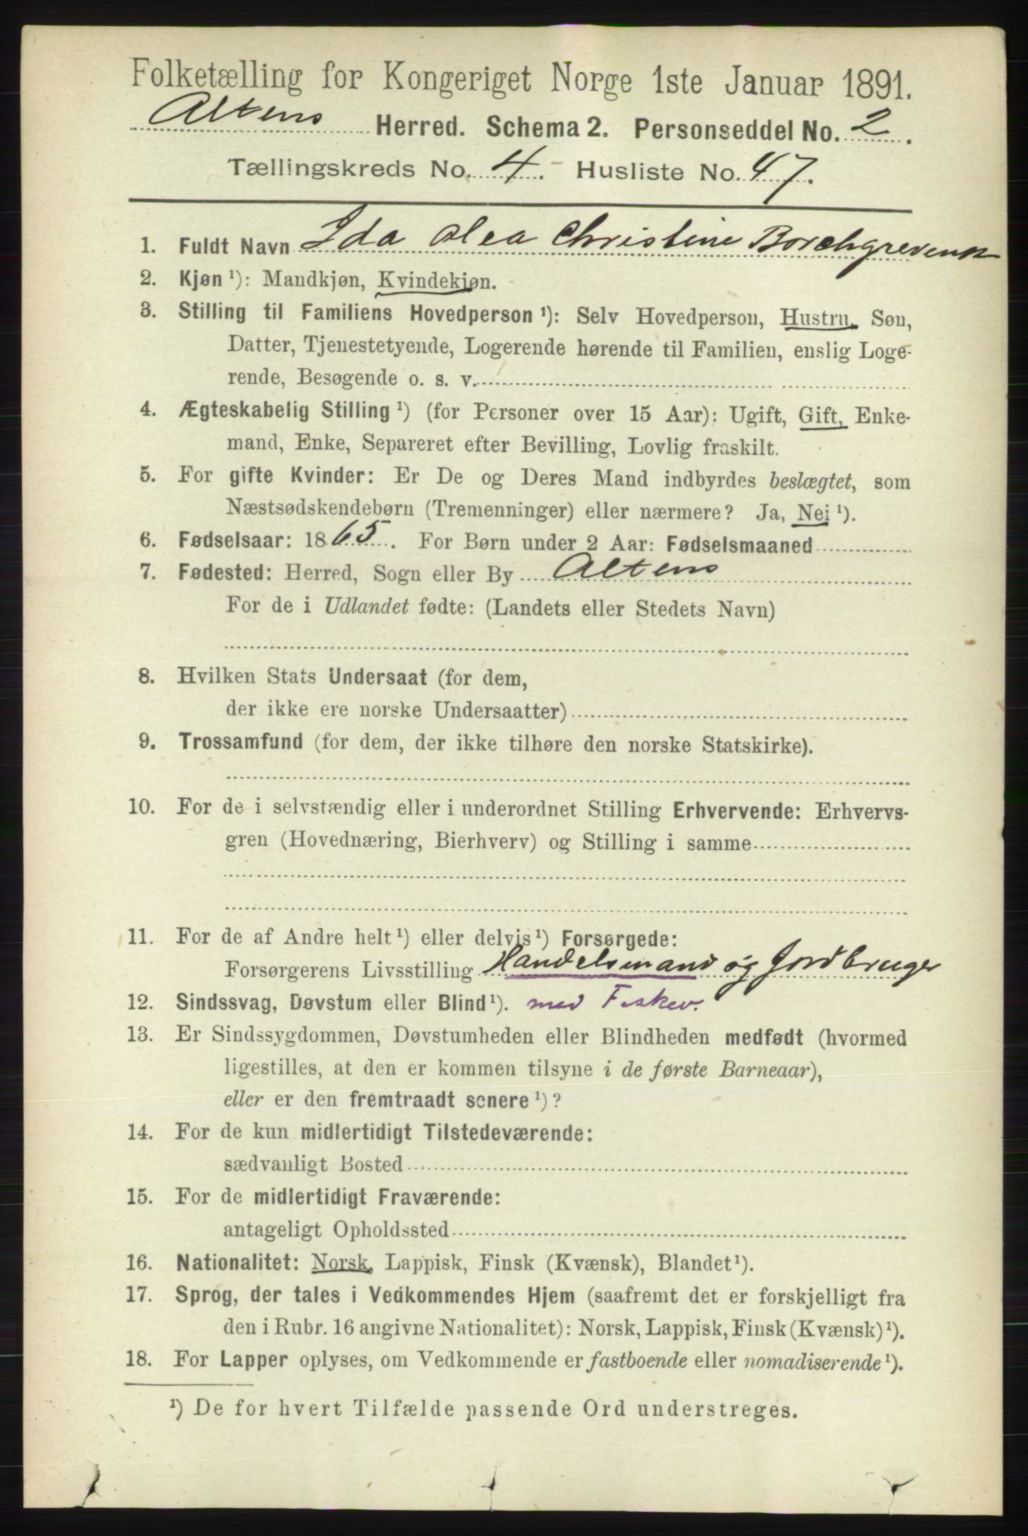 Folketælling for Kongeriget Norge 1ste Januar 1891.
Altens Herred. Schema 2. Personseddel No. 2.
Tællingskreds No. 4. - Husliste No. 47.
1. Fuldt Navn Ida Olea Christine Borchgrevink
2. Kjøn ¹): Mandkjøn, Kvindekjøn.
3. Stilling til Familiens Hovedperson ¹): Selv Hovedperson, Hustru, Søn,
Datter, Tjenestetyende, Logerende hørende til Familien, enslig Loge-
rende, Besøgende o. s. v.
4. Ægteskabelig Stilling ¹) (for Personer over 15 Aar): Ugift, Gift, Enke-
mand, Enke, Separeret efter Bevilling, Lovlig fraskilt.
5. For gifte Kvinder: Er De og Deres Mand indbyrdes beslægtet, som
Næstsødskendebørn (Tremenninger) eller nærmere? Ja, Nej ¹).
6. Fødselsaar: 1865. For Børn under 2 Aar: Fødselsmaaned
7. Fødested: Herred, Sogn eller By Altens
For de i Udlandet fødte: (Landets eller Stedets Navn)
8. Hvilken Stats Undersaat (for dem,
der ikke ere norske Undersaatter)
9. Trossamfund (for dem, der ikke tilhøre den norske Statskirke).
10. For de i selvstændig eller i underordnet Stilling Erhvervende: Erhvervs-
gren (Hovednæring, Bierhverv) og Stilling i samme
11. For de af Andre helt ¹) eller delvis ¹) Forsørgede:
Forsørgerens Livsstilling Handelsmand og Jordbruger
12. Sindssvag, Døvstum eller Blind ¹). med Fiskev.
13. Er Sindssygdommen, Døvstumheden eller Blindheden medfødt (hvormed
ligestilles, at den er kommen tilsyne i de første Barneaar),
eller er den fremtraadt senere ¹)?
14. For de kun midlertidigt Tilstedeværende:
sædvanligt Bosted
15. For de midlertidigt Fraværende:
antageligt Opholdssted
16. Nationalitet: Norsk, Lappisk, Finsk (Kvænsk), Blandet ¹).
17. Sprog, der tales i Vedkommendes Hjem (saafremt det er forskjelligt fra
den i Rubr. 16 angivne Nationalitet): Norsk, Lappisk, Finsk (Kvænsk) ¹).
18. For Lapper oplyses, om Vedkommende er fastboende eller nomadiserende ¹).
¹) De for hvert Tilfælde passende Ord understreges.